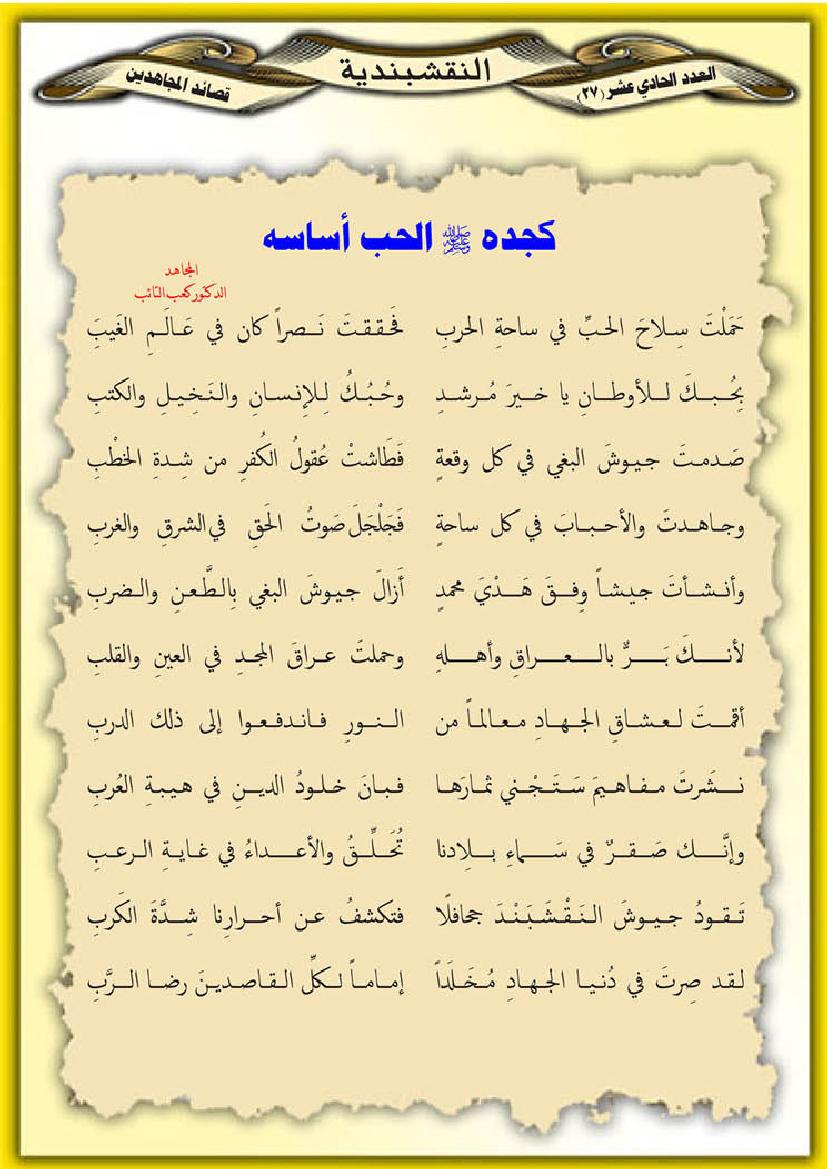 العدد الحادي عشر (٢٧)
النقشبندية
قصائد المجاهدين
كجده ﷺ الحب أساسه
المجاهد
الدكتور كعب التائب
حَمَلْتَ سِلاحَ الحبِّ في ساحةِ الحربِ فَحَققتَ نَصراً كان في عَالَمِ الغَيبِ
بِحُبكَ للأوطانِ يا خيرَ مُرشدٍ وحُبُكُ لِلإنسانِ والنَخِيلِ والكتبِ
صَدمتَ جيوشَ البغي في كل وقعةٍ فَطَاشتْ عُقولُ الكُفرِ من شِدةِ الخَطْبِ
وجاهدتَ والأحبابَ في كل ساحةٍ فَجَلْجَلَ صَوتُ الحَقِ في الشرقِ والغربِ
وأنشأتَ جيشاً وِفقَ هَدْيَ محمدٍ أزالَ جيوشَ البغي بِالطَّعنِ والضربِ
لأنكَ بَرٌّ بالعراقِ وأهلهِ وحملتَ عراقَ المجدِ في العينِ والقلبِ
أقمتَ لعشاقِ الجهادِ معالماً من النورِ فاندفعوا إلى ذلك الدربِ
نشَرتَ مفاهيمَ سَتَجْني ثمارَها فبانَ خلودُ الدينِ في هيبةِ العُربِ
وإنَّك صَقرٌ في سَماءِ بلادنا تُحَلِّقُ والأعداءُ في غايةِ الرعبِ
تَقودُ جيوشَ النَقْشَبَنْدَ جحافلًا فتكشفُ عن أحرارِنا شِدَّةَ الكَربِ
لقد صِرتَ في دُنيا الجهادِ مُخَلَداً إماماً لكلِّ القاصدينَ رضا الرَّبِ